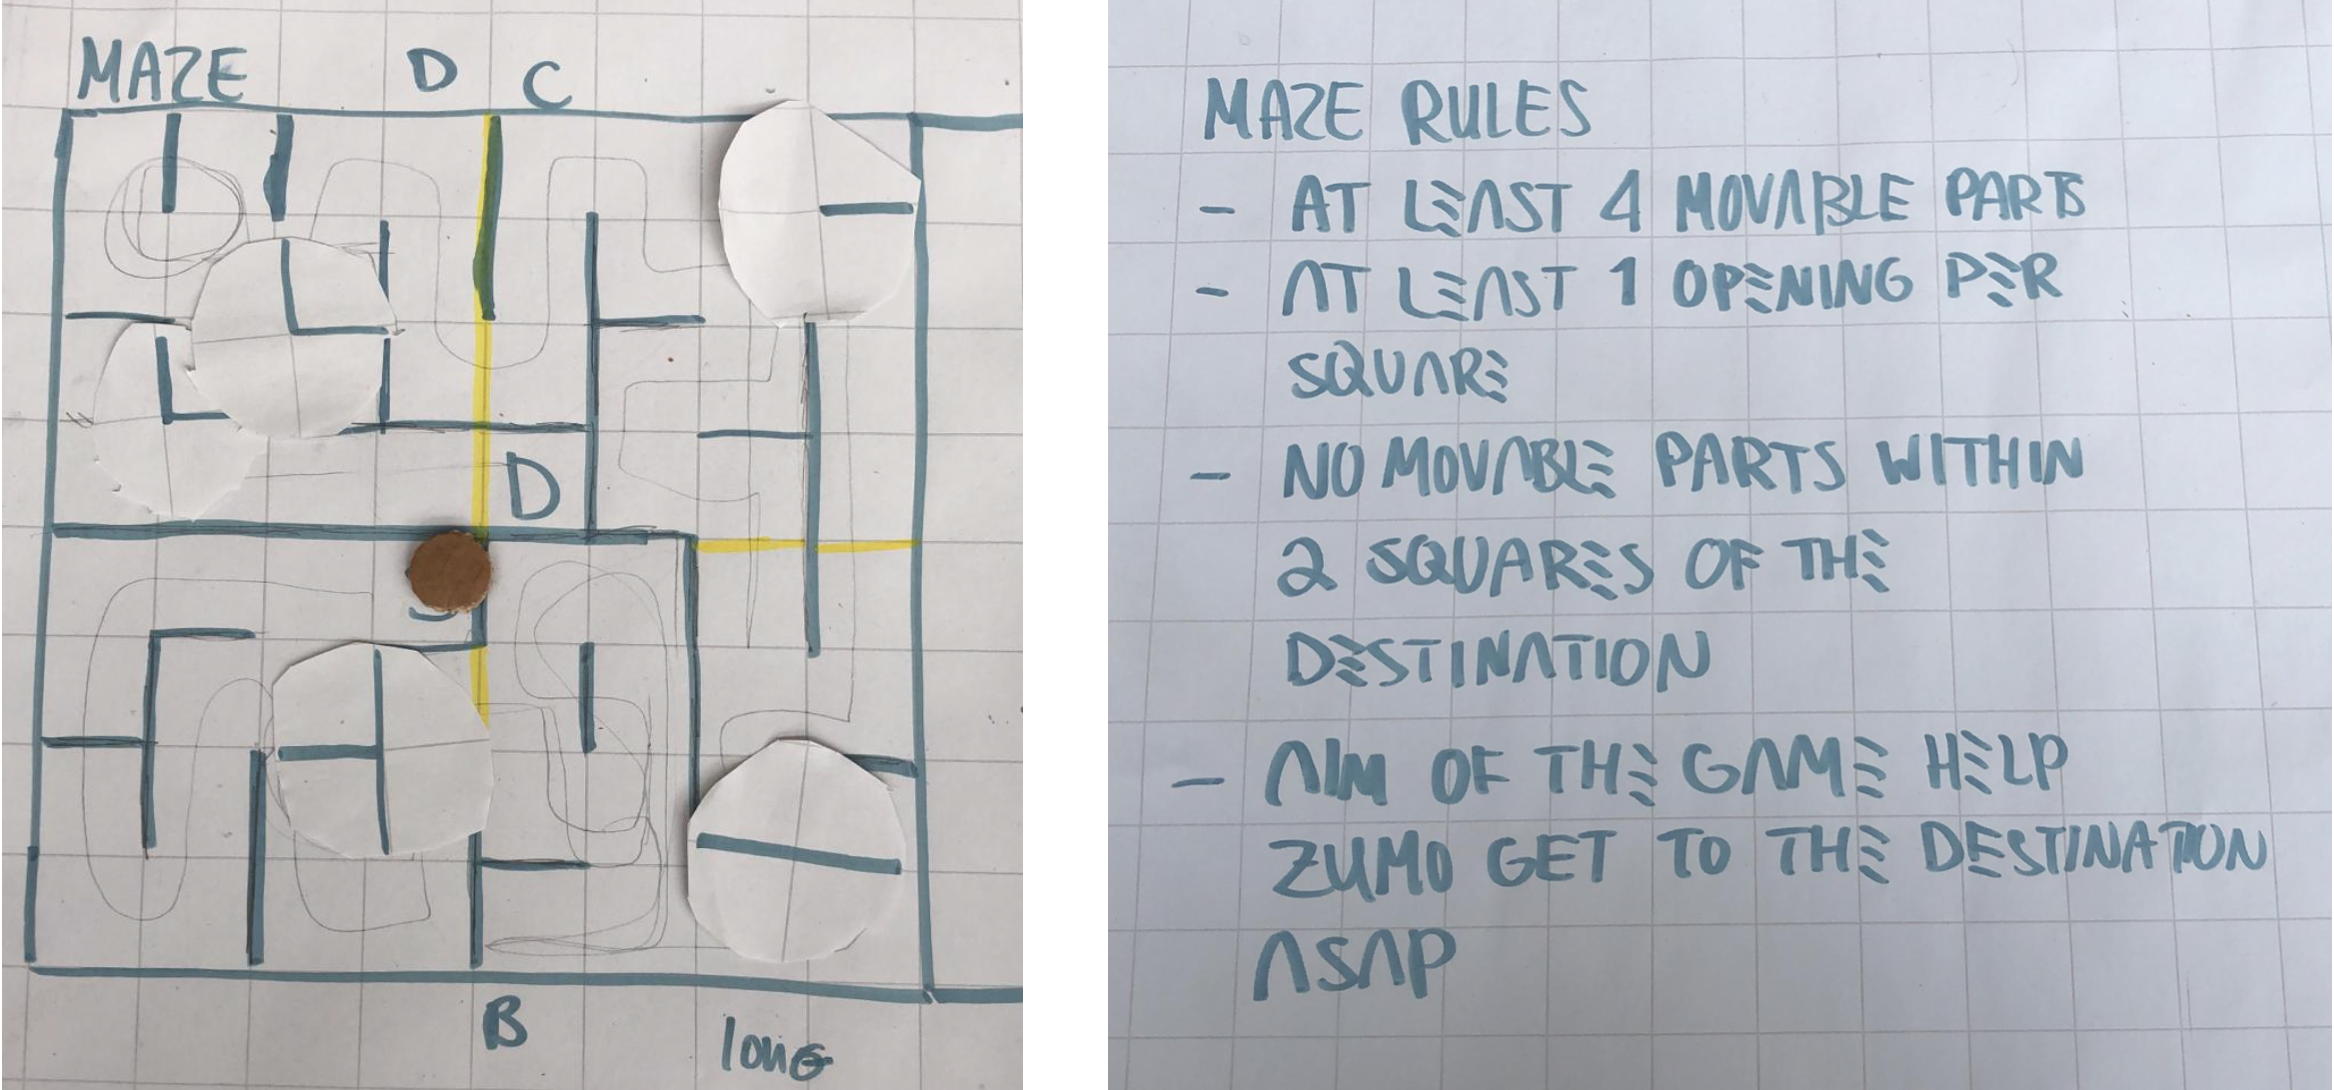 MAZE D C
D
B
long
MAZE RULES
- AT LEAST 4 MOVABLE PARTS
- AT LEAST 1 OPENING PER
SQUARE
- NO MOVABLE PARTS WITHIN
2 SQUARES OF THE
DESTINATION
- AIM OF THE GAME HELP
ZUMO GET TO THE DESTINATION
ASAP